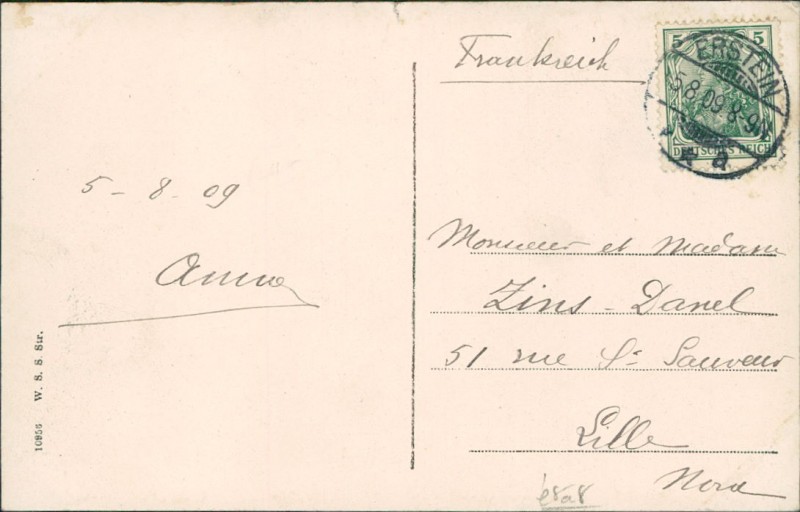 Frankreich
5
5
ERSTEIN
5.8.09.8-9V
* a
DEUTSCHES REICH
5 - 8 - 09
Anna
Monsieur et Madame
Zins - Danel
51 rue St Sauveur
Lille
Nord
10956 W. S. S. Str.